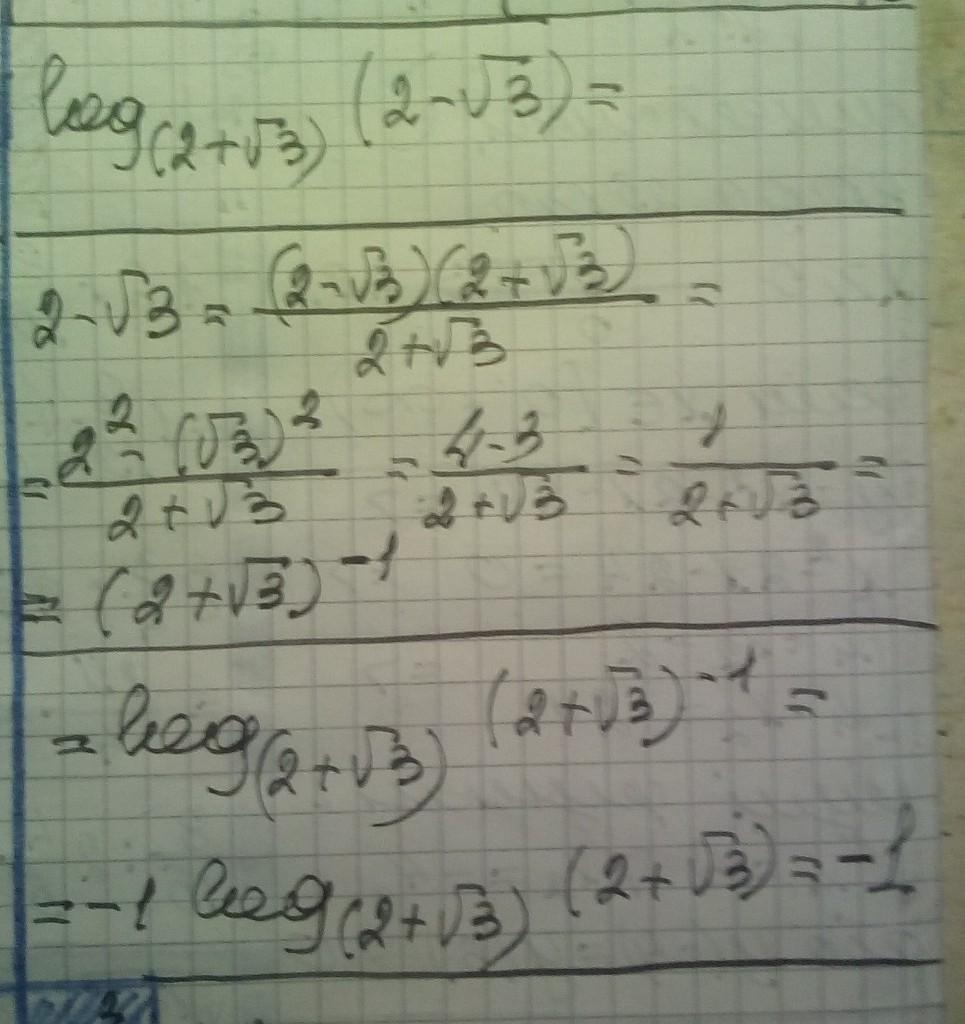 log_(2+√3) (2-√3) =
2-√3 = (2-√3)(2+√3)/2+√3 =
= 2²-(√3)²/2+√3 = 4-3/2+√3 = 1/2+√3 =
= (2+√3)⁻¹
= log_(2+√3) (2+√3)⁻¹ =
= -1 log_(2+√3) (2+√3) = -1